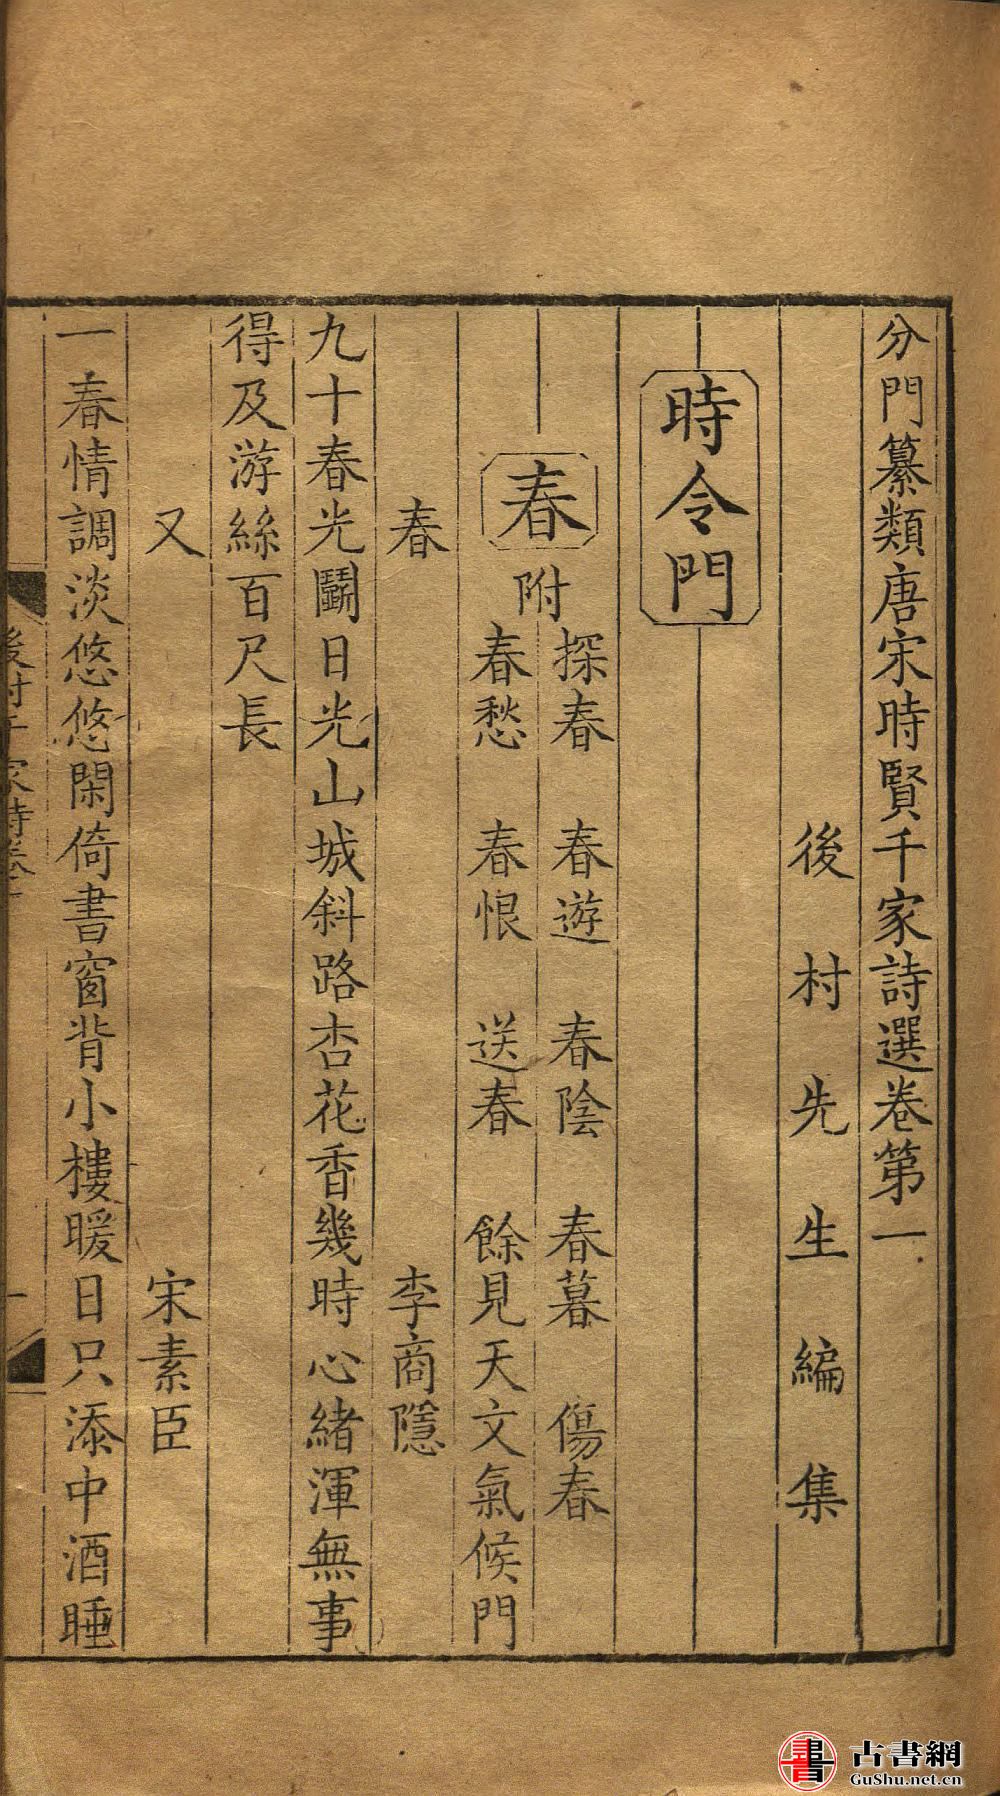 分門纂類唐宋時賢千家詩選卷第一
後村先生編集
時令門
春
附
探春 春遊 春陰 春暮 傷春
春愁 春恨 送春 餘見天文氣候門
春 李商隱
九十春光鬭日光山城斜路杏花香幾時心緒渾無事
得及游絲百尺長
又 宋素臣
一春情調淡悠悠閑倚書窗背小樓暖日只添中酒睡
後村千家詩卷一
一
古書網
GuShu.net.cn